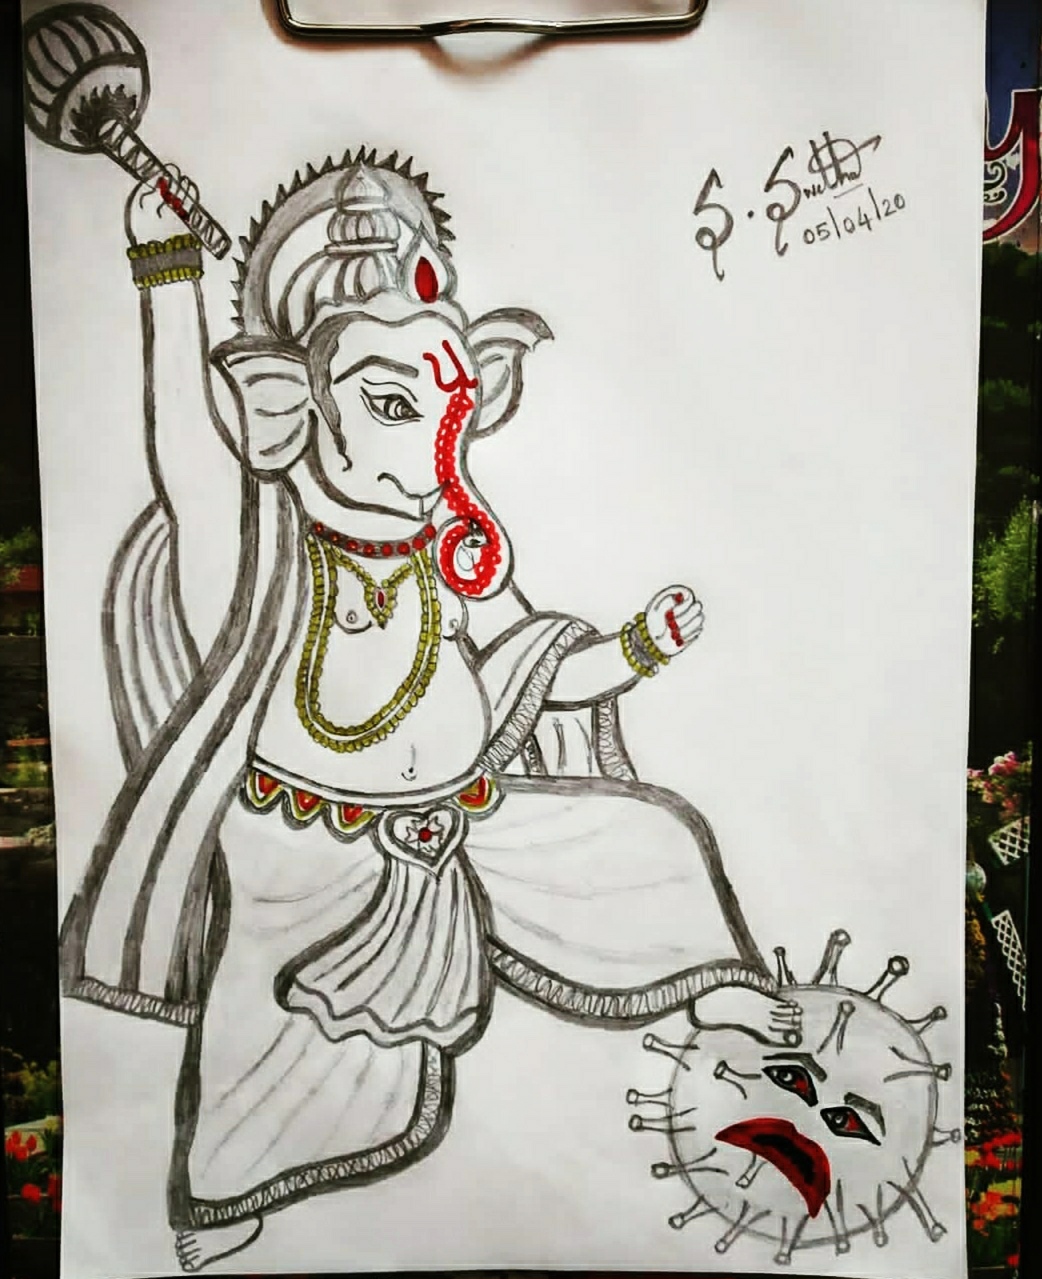 S. Swetha
05/04/20